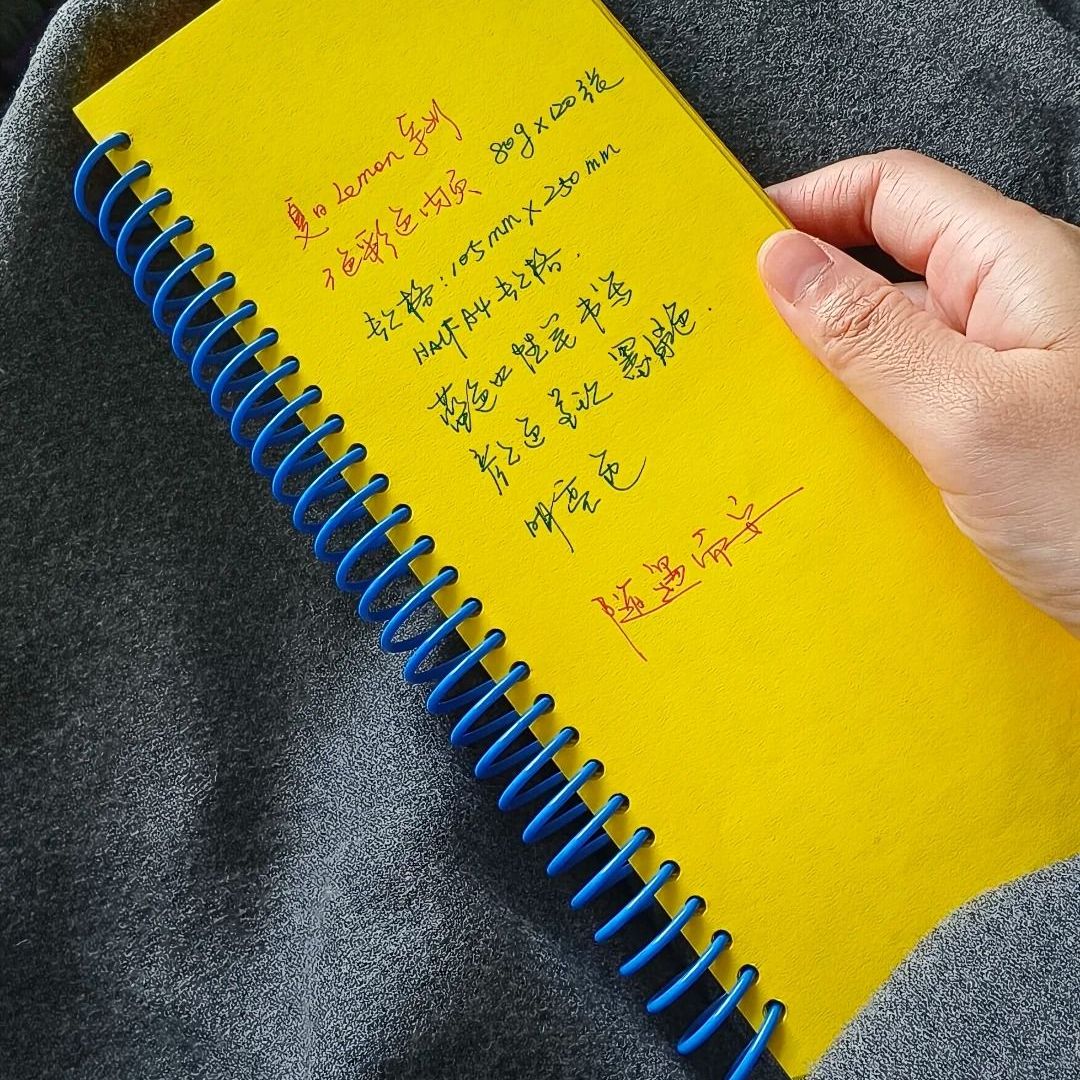 夏日Lemon系列
7色彩色内页 80g×120张
规格:105mm×250mm
HALF A4规格.
蓝色中性笔书写
颜色差议墨蓝色.
明亮色
随遇而安